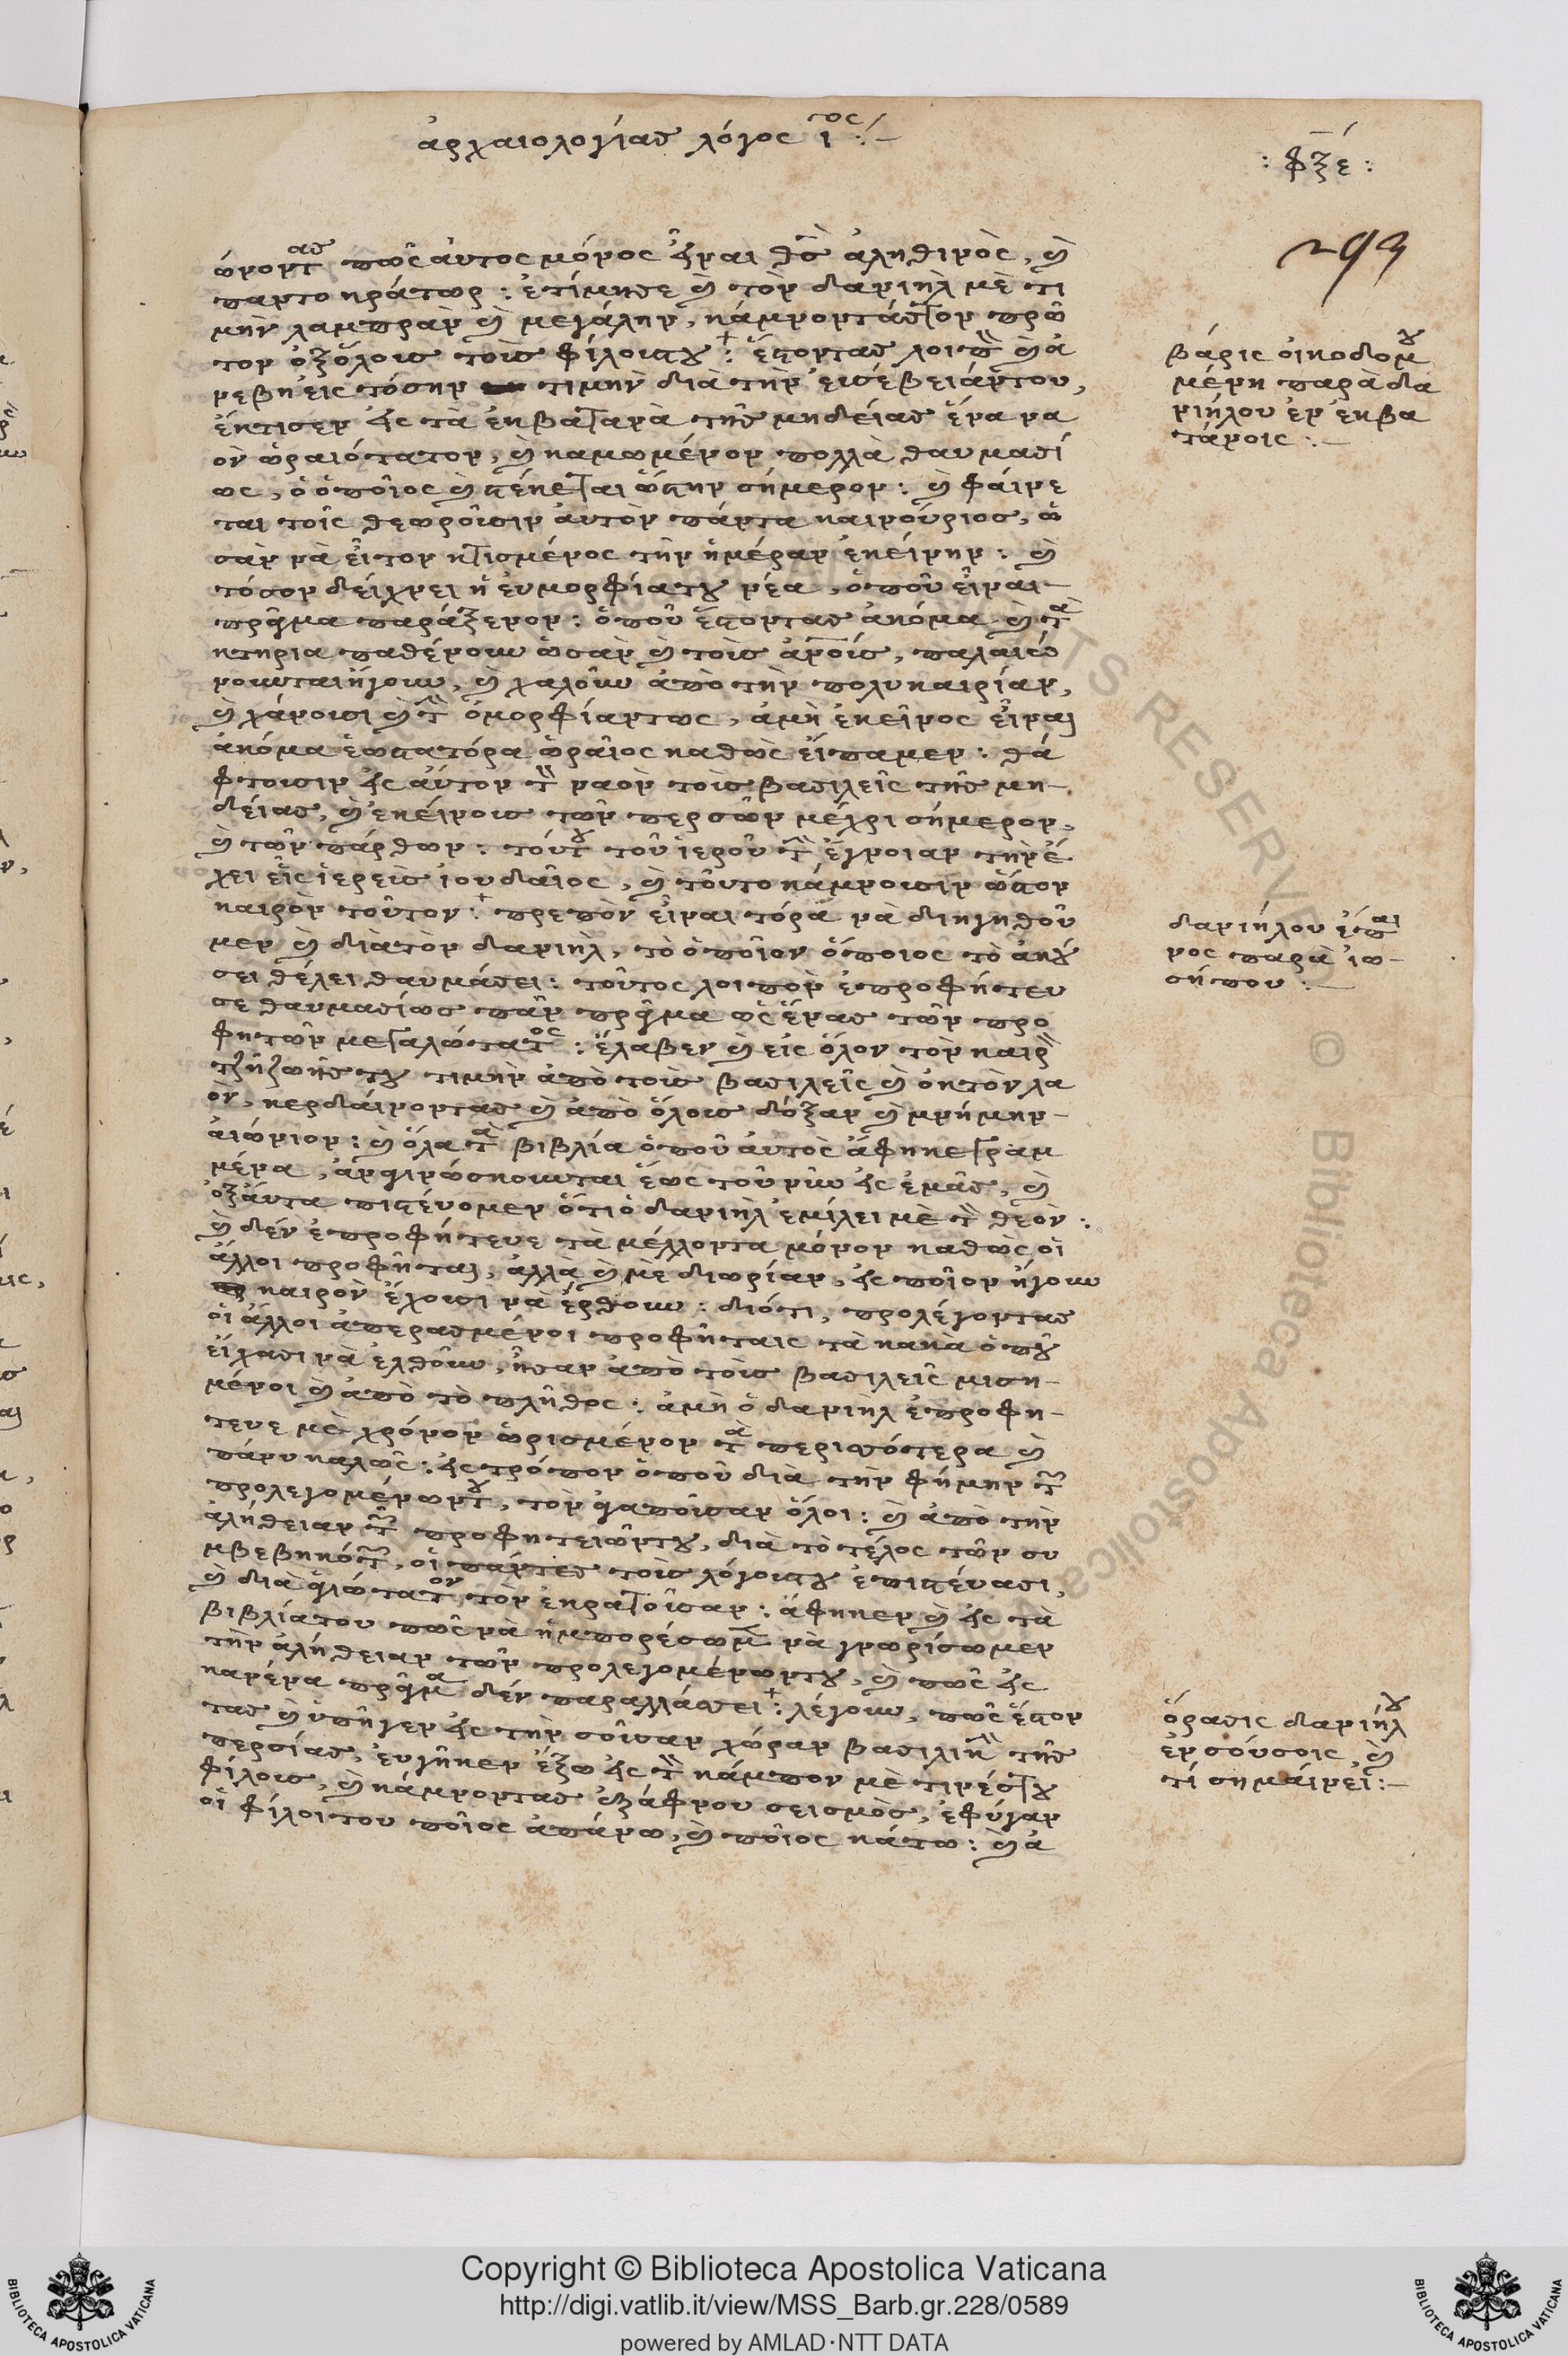 ἀρχαιολογίας λόγος ιος :–
: φξε :
293
ώνοντας πῶς αὐτος μόνος εἶναι θς ἀληθινὸς, καὶ
παντοκράτωρ : ἐτίμησε καὶ τὸν δανιὴλ μὲ τι
μὴν λαμπρὰν καὶ μεγάλην, κάμνοντάς τον πρῶ
τον ὀξόλους τοὺς φίλους του : ἔστοντας λοιπὸν καὶ ἀ
νεβῆ εἰς τόσην τιμὴν διὰ τὴν εὐσέβειάν του,
ἔκτισεν εἰς τὰ ἐκβατανὰ τῆς μηδείας ἕνα να
ὸν ὡραιότατον, καὶ καμωμένον πολλὰ θαυμασί
ως, ὁ ὁποῖος καὶ στέκεται ὥστην σήμερον : καὶ φαίνε
ται τοῖς θεωροῦσιν αὐτὸν πάντα καινούριος, ὡ
σὰν νὰ εἶτον κτισμένος τὴν ἡμέραν ἐκείνην : καὶ
τόσον δείχνει ἡ εὐμορφία του νέα, ὁποῦ εἶναι–
πρᾶγμα παράξενον : ὁποῦ ἔστοντας ἀκόμα καὶ τὰ
κτηρια παθένουν ὡσὰν καὶ τοὺς ἀνους, παλαιώ
νουνται ἤγουν, καὶ χαλοῦν ἀπὸ τὴν πολυκαιρίαν,
καὶ χάνουσι καὶ τὴν ὀμορφίαντως, ἀμὴ ἐκεῖνος εἶναι
ἀκόμα ἑωστατόρα ὡραῖος καθὼς εἴπαμεν : θά
φτουσιν εἰς αὐτον τὸν ναὸν τοὺς βασιλεῖς τῆς μη–
δείας, καὶ ἐκείνους τῶν περσῶν μέχρι σήμερον,
καὶ τῶν πάρθων : τούτου τοῦ ἱεροῦ τὴν ἔγνοιαν τὴν ἔ
χει εἷς ἱερεὺς ἰουδαῖος, καὶ τοῦτο κάμνουσιν ὥστον
καιρὸν τοῦτον : πρεπὸν εἶναι τόρα νὰ διηγηθοῦ
μεν καὶ διὰ τὸν δανιὴλ, τὸ ὁποῖον ὅποιος τὸ ἀκού
σει θέλει θαυμάσει : τοῦτος λοιπὸν ἐπροφήτευ
σε θαυμασίως πᾶν πρᾶγμα ὡς ἕνας τῶν προ
φητῶν μεγαλώτατος : ἔλαβεν καὶ εἰς ὅλον τὸν καιρὸν
τῆς ζωῆς του τιμὴν ἀπὸ τοὺς βασιλεῖς καὶ ὀκτὸν λα
ὸν, κερδαίνοντας καὶ ἀπὸ ὅλους δόξαν καὶ μνήμην–
αἰώνιον : καὶ ὅλα τὰ βιβλία ὁποῦ αὐτὸς ἄφηκε γραμ
μένα, ἀναγινώσκουνται ἕως τοῦ νῦν εἰς ἐμᾶς, καὶ
ὀξάυτα πιστεύομεν ὅτι ὁ δανιὴλ ἐμίλει μὲ τὸν θεὸν :
καὶ δὲν ἐπροφήτευε τὰ μέλλοντα μόνον καθὼς οἱ
ἄλλοι προφῆται, ἀλλὰ καὶ μὲ διωρίαν, εἰς ποῖον ἤγουν
καιρὸν ἔχουσι νὰ ἔρθουν : διότι, προλέγοντας
οἱ ἄλλοι ἀπερασμένοι προφῆταις τὰ κακὰ ὁποῦ
εἴχασι νὰ ἐλθοῦν, ἦσαν ἀπὸ τοὺς βασιλεῖς μιση–
μένοι καὶ ἀπὸ τὸ πλῆθος : ἀμὴ ὁ δανιὴλ ἐπροφή–
τευε μὲ χρόνον ὡρισμένον τὰ περισσότερα καὶ
πάνυ καλῶς : εἰς τρόπον ὁποῦ διὰ τὴν φήμην τῶν
προλεγομένων του, τὸν ἀγαποῦσαν ὅλοι : καὶ ἀπὸ τὴν
ἀλήθειαν τῶν προφητειῶν του, διὰ τὸ τέλος τῶν συ
μβεβηκότων, οἱ πάντες τοὺς λόγους του ἐπιστεύασι,
καὶ διὰ ἁγιώτατον τὸν ἐκρατοῦσαν : ἄφηκεν καὶ εἰς τὰ
βιβλία του πῶς νὰ ἠμπορέσωμεν νὰ γνωρίσωμεν
τὴν ἀλήθειαν τῶν προλεγομένων του, καὶ πῶς εἰς
κανένα πρᾶγμα δὲν παραλλάσσει : λέγουν, πῶς ἔστον
τας καὶ ὑπῆγεν εἰς τὴν σοῦσαν χώραν βασιλικὴν τῆς
περσίας, εὐγῆκεν ἔξω εἰς τὸν κάμπον μὲ τινές του
φίλους, καὶ κάμνοντας ἐξάφνου σεισμὸς, ἐφύγαν
οἱ φίλοι του ποῖος ἀπάνω, καὶ ποῖος κάτω : καὶ ἀ
βάρις οἰκοδομου
μένη παρὰ δα
νιήλου ἐν ἐκβα
τάνοις :–
δανιήλου ἔπαι
νος παρὰ ἰω–
σήπου :–
ὅρασις δανιήλου
ἐν σούσοις, καὶ
τί σημαίνει :–
© Biblioteca Apostolica
TS RESERVE
Copyright © Biblioteca Apostolica Vaticana
http://digi.vatlib.it/view/MSS_Barb.gr.228/0589
powered by AMLAD·NTT DATA
BIBLIOTECA APOSTOLICA VATICANA
BIBLIOTECA APOSTOLICA VATICANA